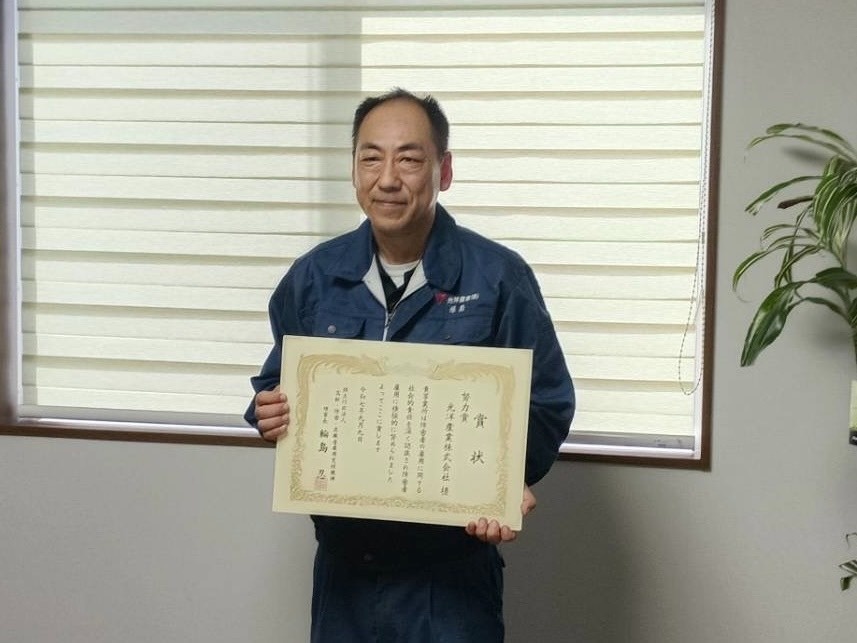 賞状
努力賞
光洋産業株式会社 様
貴事業所は障害者の雇用に関する
社会的責任を深く認識され障害者
雇用に積極的に努められました
よってここに賞します
令和七年九月九日
独立行政法人
高齢・障害・求職者雇用支援機構
理事長 輪島 忍